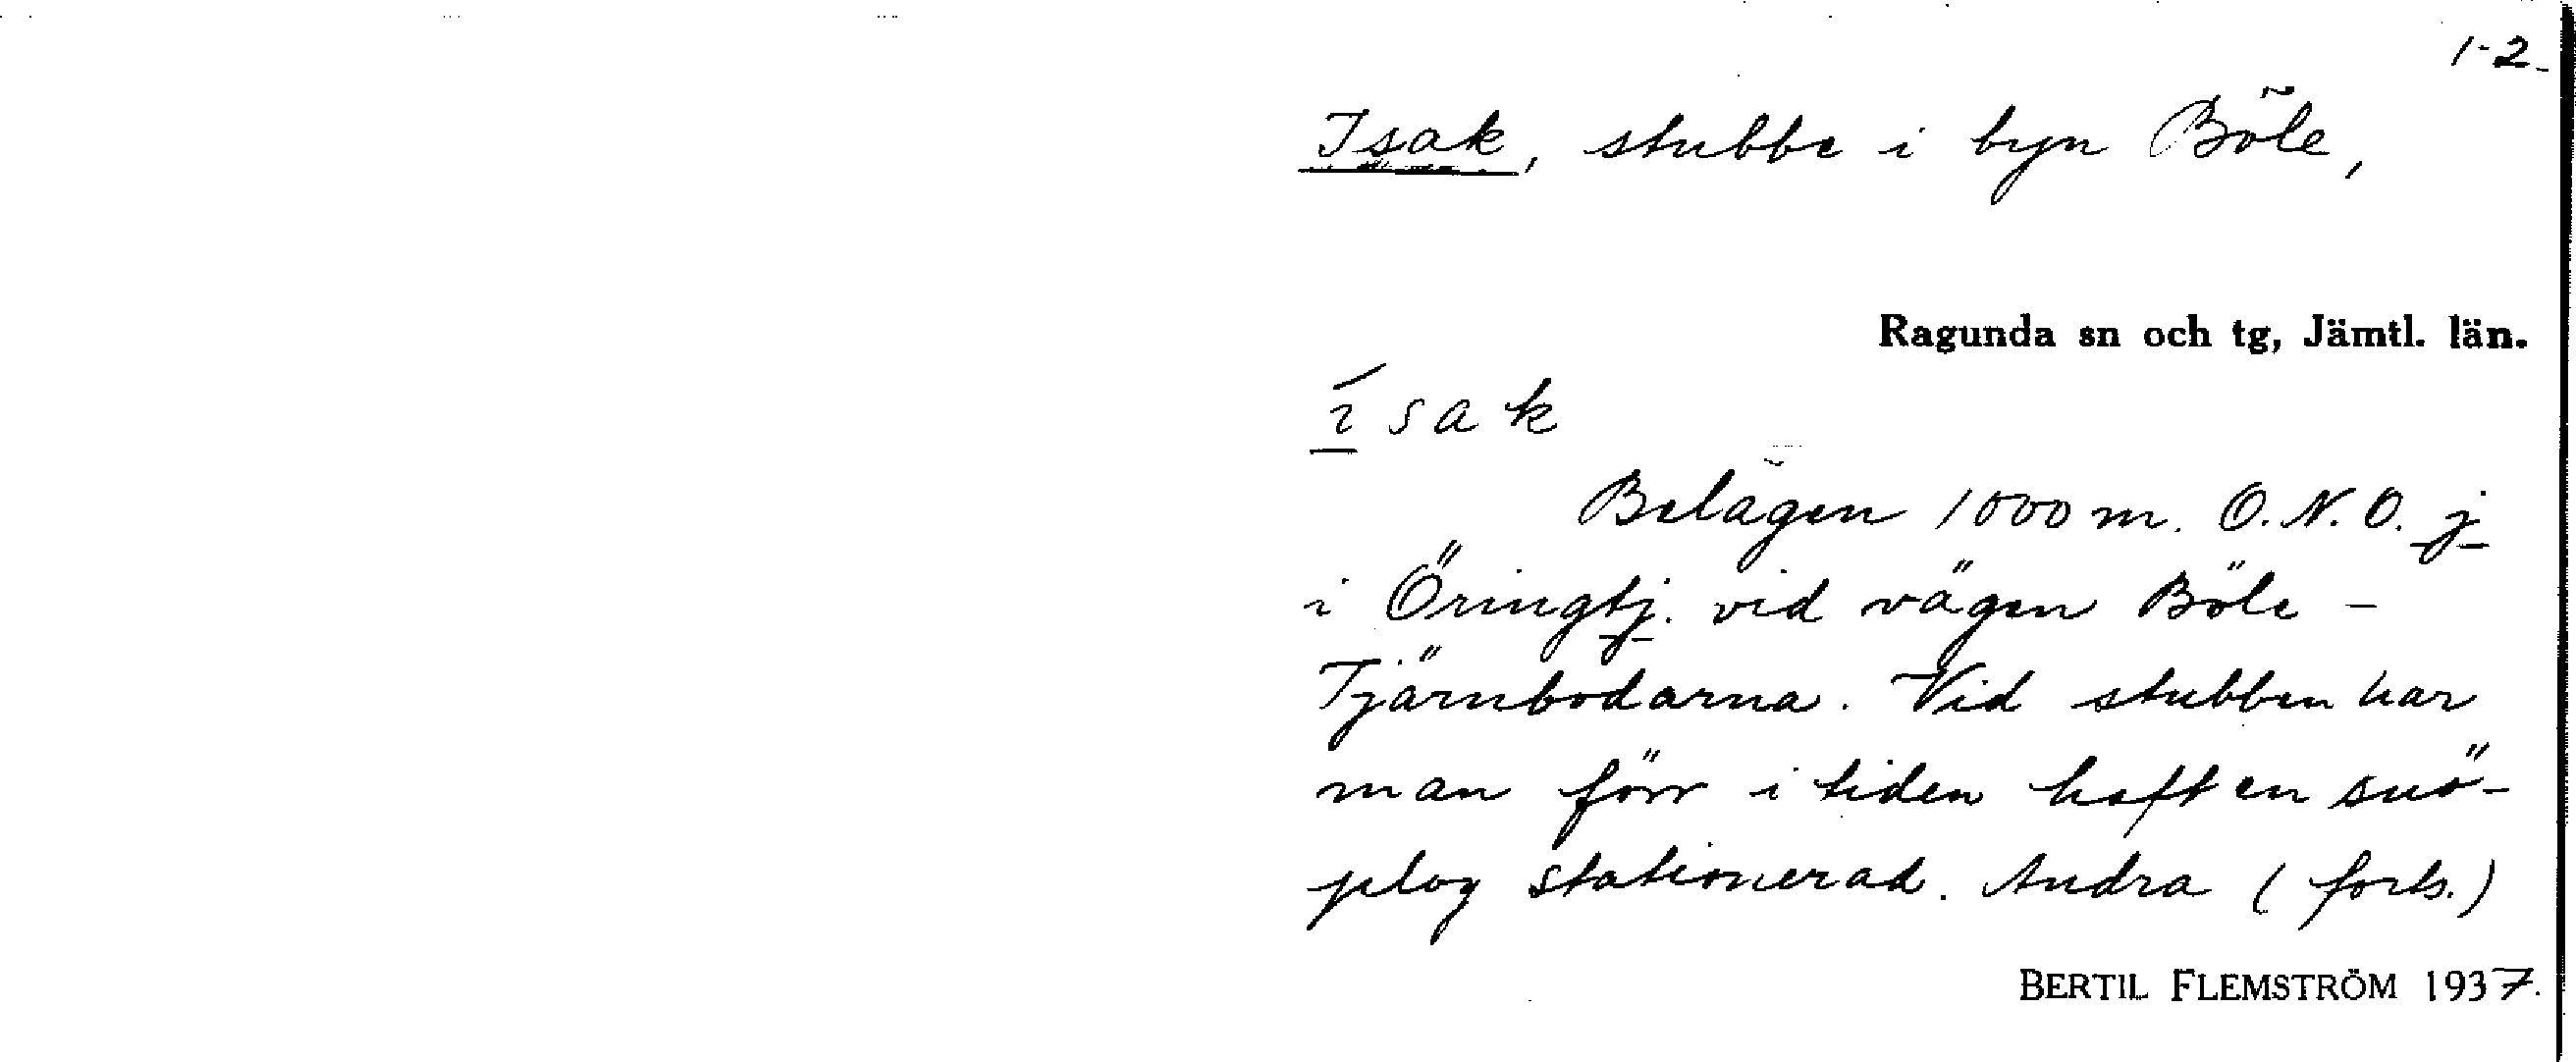 1-2.
Isak, stubbe i byn Böle,
Ragunda sn och tg, Jämtl. län.
ísak
Belägen 1000 m. O.N.O. j
i Öringtj. vid vägen Böle -
Tjärnbodarna. Vid stubben har
man förr i tiden haft en snö-
plog stationerad. Andra (forts.)
BERTIL FLEMSTRÖM 1937.